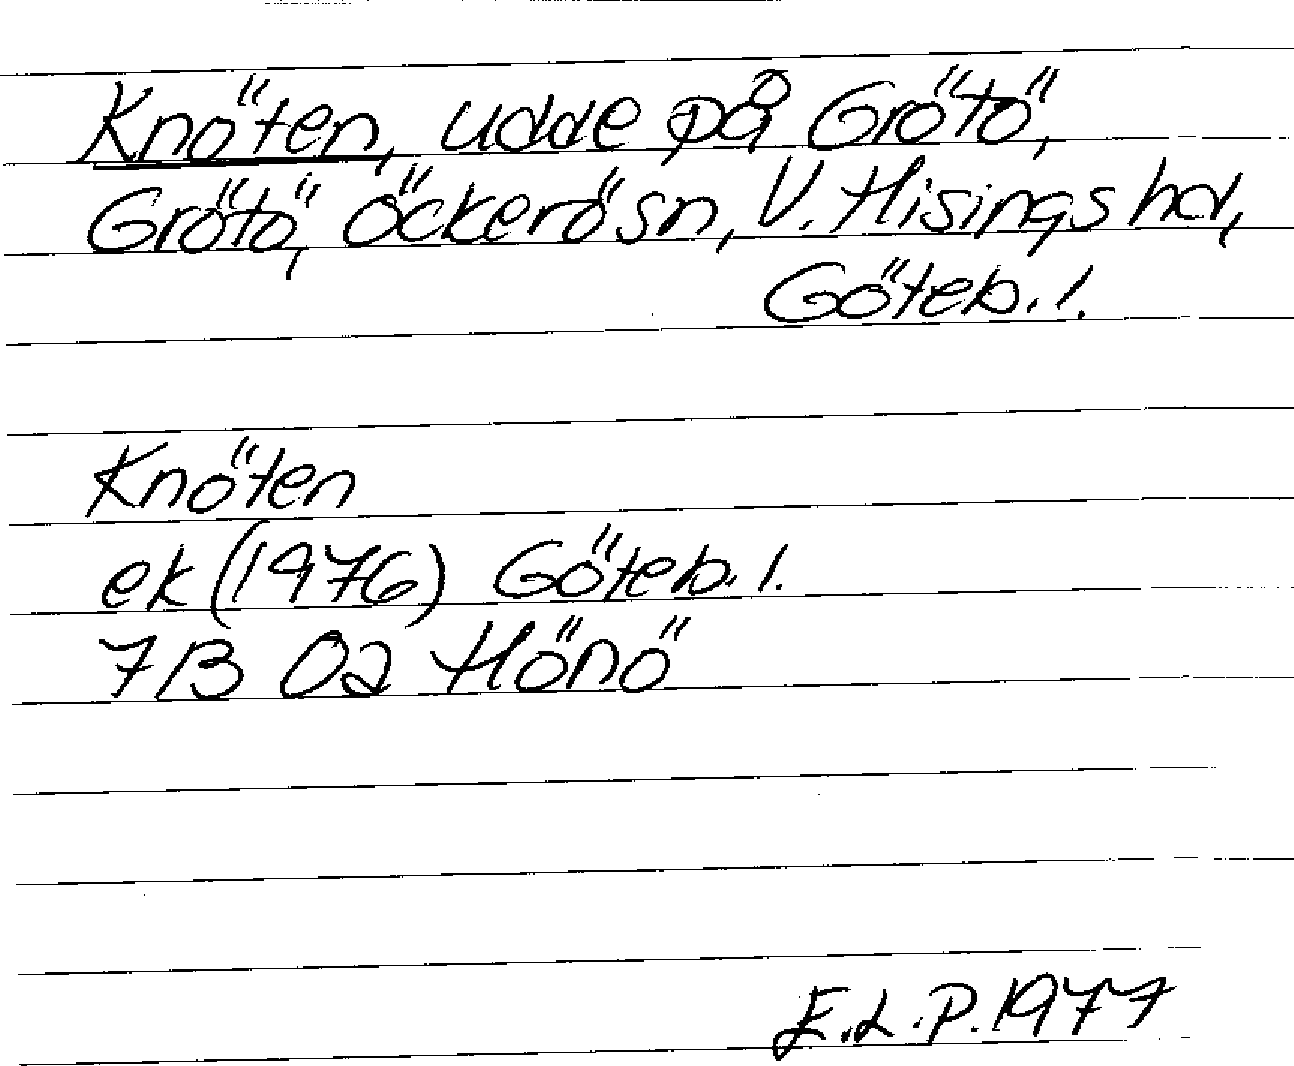 Knöten, udde på Grötö,
Grötö, Öckerö sn, V. Hisings hd,
Göteb. l.
Knöten
ek (1976) Göteb. l.
7B 0a Hönö
E.L.P. 1977